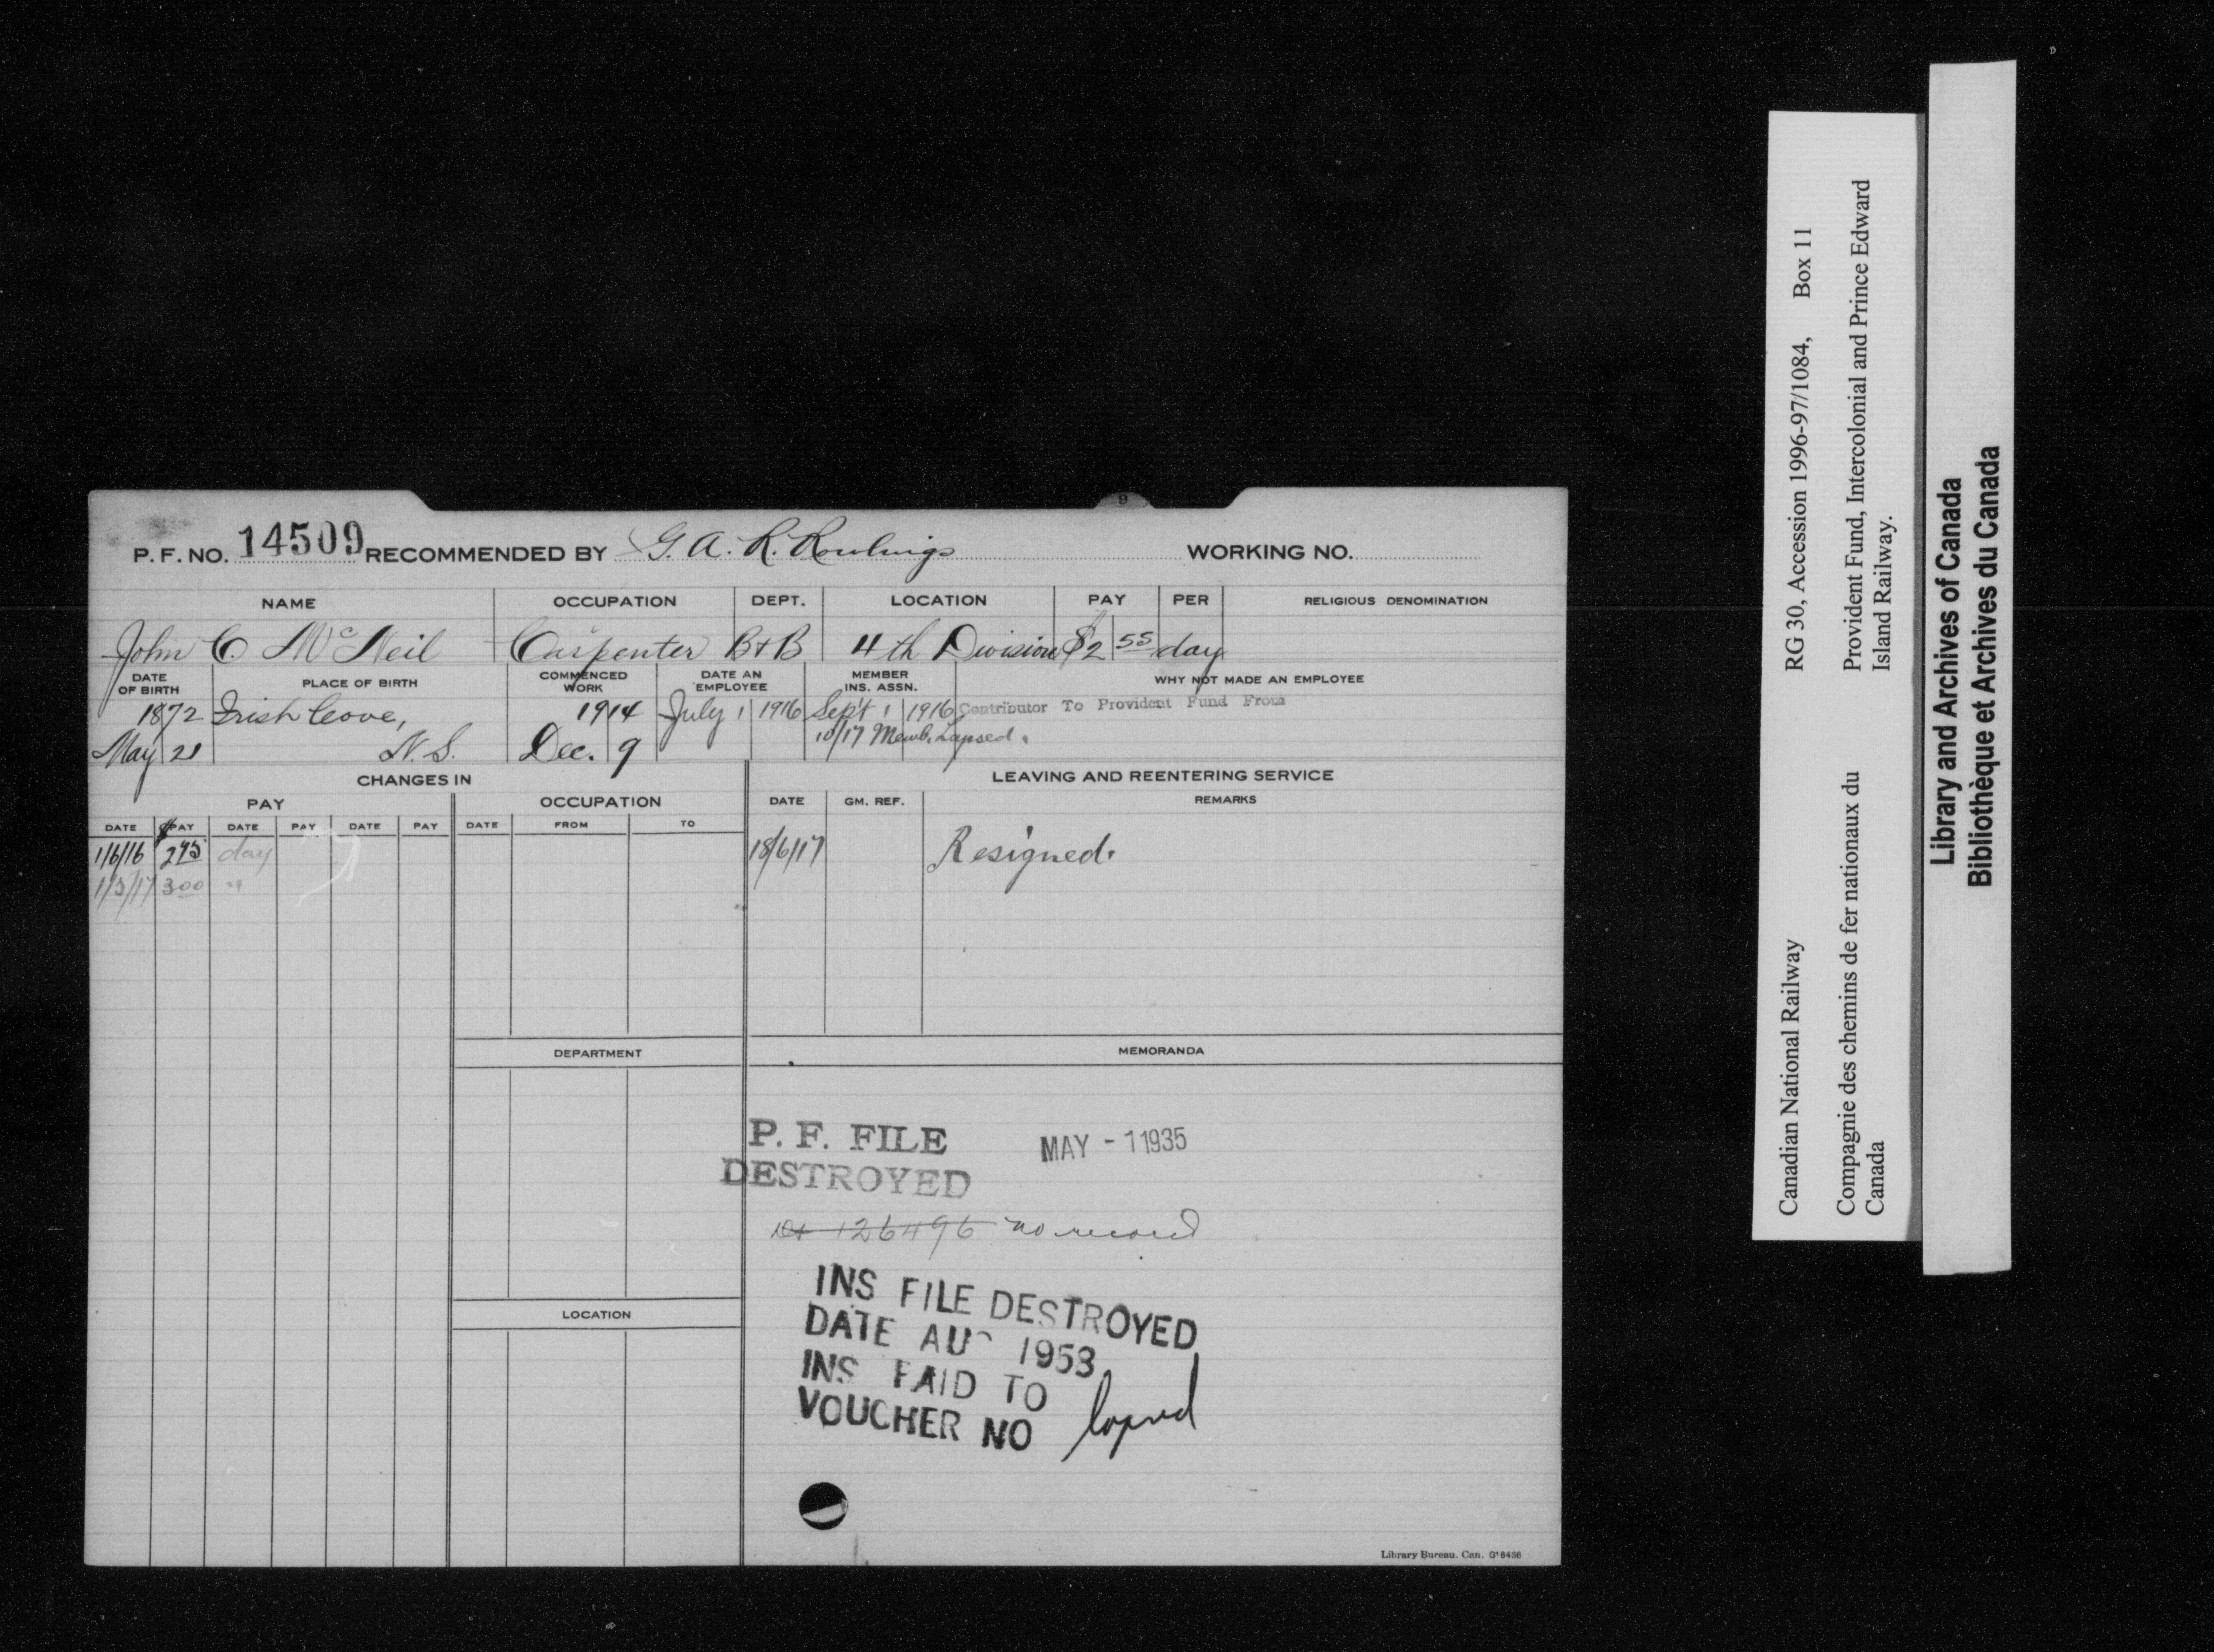 P. F. NO. 14509 RECOMMENDED BY G. A. R. Rowlings WORKING NO.
NAME OCCUPATION DEPT. LOCATION PAY PER RELIGIOUS DENOMINATION
John C. McNeil Carpenter B+B 4th Division $2 55 day
DATE OF BIRTH PLACE OF BIRTH COMMENCED WORK DATE AN EMPLOYEE MEMBER INS. ASSN. WHY NOT MADE AN EMPLOYEE
1872 Irish Cove, 1914 July 1 1916 Sept 1 1916 Contributor To Provident Fund From
10/17 Memb. Lapsed.
May 21 N.S. Dec. 9
CHANGES IN LEAVING AND REENTERING SERVICE
PAY OCCUPATION DATE GM. REF. REMARKS
DATE $PAY DATE PAY DATE PAY DATE FROM TO
1/6/16 275 day 18/6/17 Resigned.
1/5/17 300 "
DEPARTMENT MEMORANDA
P. F. FILE MAY - 1 1935
DESTROYED
126496 no record
INS FILE DESTROYED
DATE AU 1953
INS PAID TO
VOUCHER NO lapsed
LOCATION
Library Bureau. Can. G16436
RG 30, Accession 1996-97/1084, Box 11
Provident Fund, Intercolonial and Prince Edward
Island Railway.
Canadian National Railway
Compagnie des chemins de fer nationaux du
Canada
Library and Archives of Canada
Bibliothèque et Archives du Canada